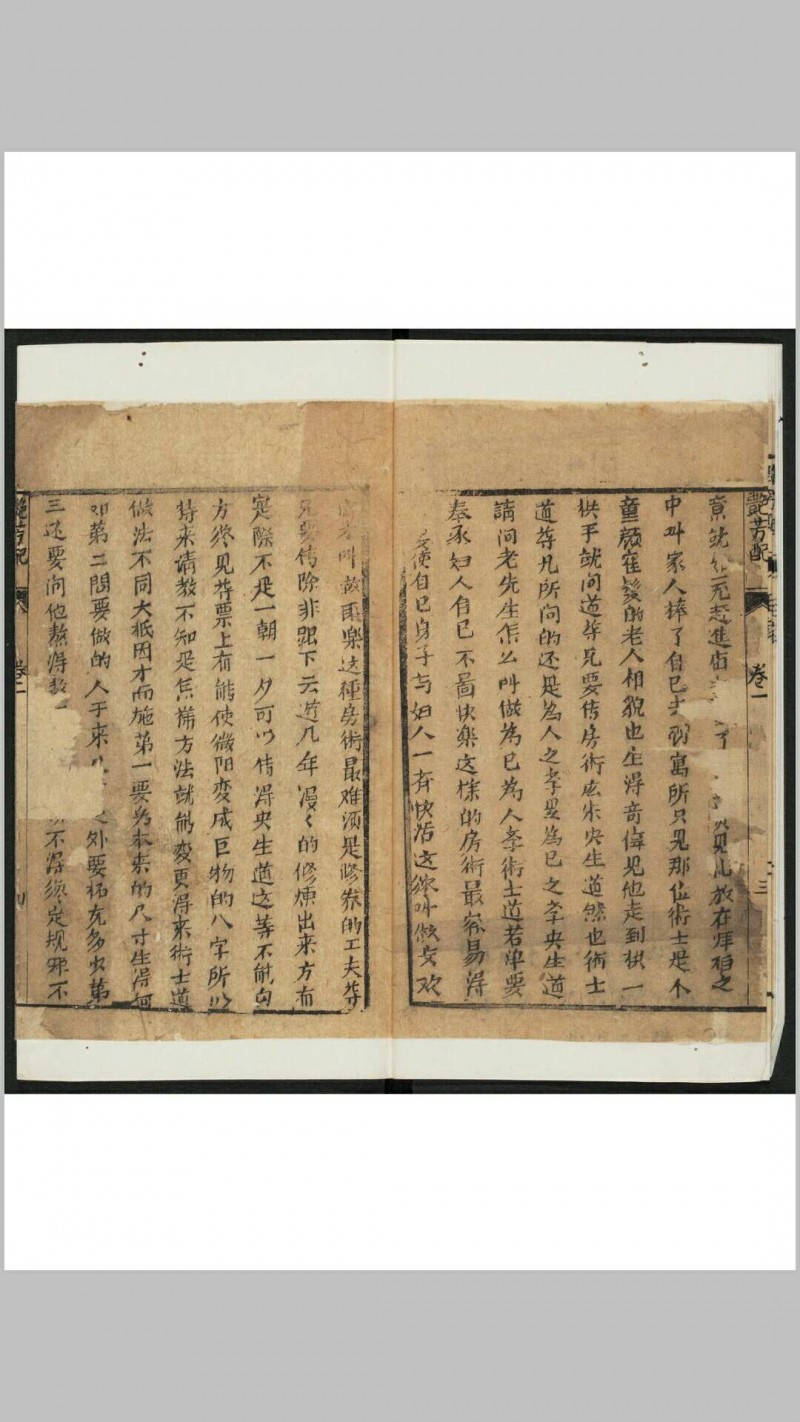 艷芳配
卷一
三
意就
无志進
見
放在拜箱之
中叫家人捧了自己走到寓所只見那位術士是个
童顏隺髮的老人相貌也生得奇偉見他走到拱一
拱手就问道尊兄要传房術庅未央生道然也術士
道尊凡所问的还是為人之孝畧為已之孝央生道
請问老先生怎么叫做為已為人条術士道若单要
奉承妇人自已不啚快樂这様的房術最容易得
要使自已身子与妇人一斉快活这纔叫做交欢
叫做雨樂这種房術最难湏是修养的工夫尊
兄要传除非跟下云逰几年漫〻的修煉出来方有
寔際不是一朝一夕可以传得央生道这等不能勾
方終见尊票上有能使微阳变成巨物的八字所以
特来请教不知是怎様方法就能变更得来術士道
做法不同大抵因才而施第一要為本来的尺寸生得何
如第二問要做的人于来
之外要拓充多少第
三还要问他熬得
不得纔定规那不
艷芳配
卷一